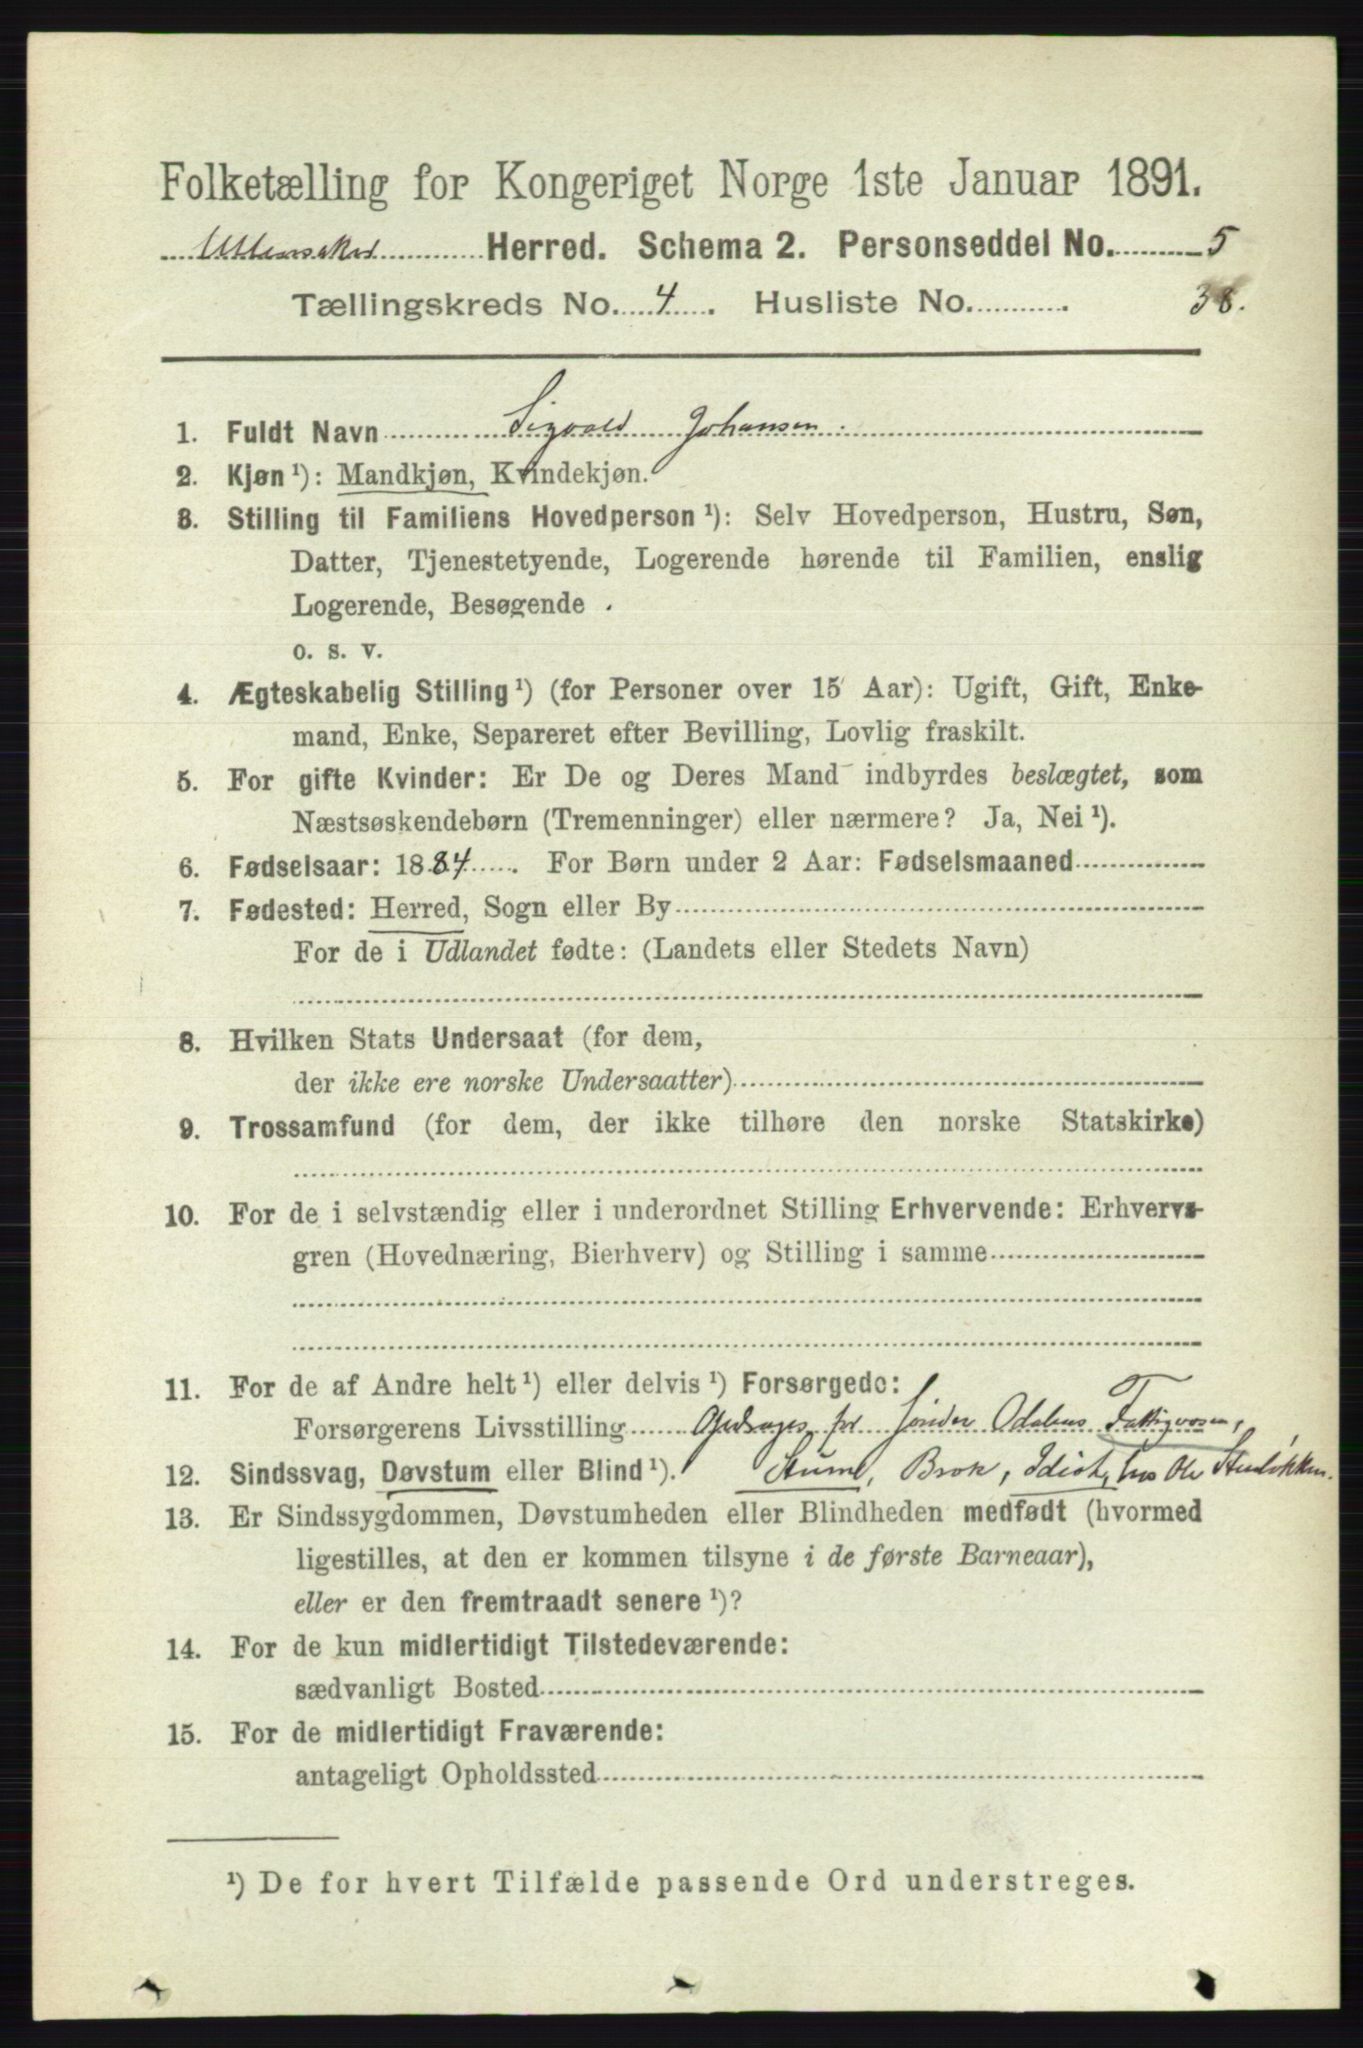 Folketælling for Kongeriget Norge 1ste Januar 1891.
Ullensaker Herred. Schema 2. Personseddel No. 5
Tællingskreds No. 4. Husliste No. 38.
1. Fuldt Navn Sigvald Johansen.
2. Kjøn ¹): Mandkjøn, Kvindekjøn.
3. Stilling til Familiens Hovedperson ¹): Selv Hovedperson, Hustru, Søn,
Datter, Tjenestetyende, Logerende hørende til Familien, enslig
Logerende, Besøgende .
o. s. v.
4. Ægteskabelig Stilling ¹) (for Personer over 15 Aar): Ugift, Gift, Enke-
mand, Enke, Separeret efter Bevilling, Lovlig fraskilt.
5. For gifte Kvinder: Er De og Deres Mand indbyrdes beslægtet, som
Næstsøskendebørn (Tremenninger) eller nærmere? Ja, Nei ¹).
6. Fødselsaar: 1884. For Børn under 2 Aar: Fødselsmaaned
7. Fødested: Herred, Sogn eller By
For de i Udlandet fødte: (Landets eller Stedets Navn)
8. Hvilken Stats Undersaat (for dem,
der ikke ere norske Undersaatter)
9. Trossamfund (for dem, der ikke tilhøre den norske Statskirke)
10. For de i selvstændig eller i underordnet Stilling Erhvervende: Erhvervs-
gren (Hovednæring, Bierhverv) og Stilling i samme
11. For de af Andre helt ¹) eller delvis ¹) Forsørgede:
Forsørgerens Livsstilling Opdrages for Sönder Odalens Fattigvæsen,
12. Sindssvag, Døvstum eller Blind ¹). Stum, Brok, Idiot, hos Ole
13. Er Sindssygdommen, Døvstumheden eller Blindheden medfødt (hvormed
ligestilles, at den er kommen tilsyne i de første Barneaar),
eller er den fremtraadt senere ¹)?
14. For de kun midlertidigt Tilstedeværende:
sædvanligt Bosted
15. For de midlertidigt Fraværende:
antageligt Opholdssted
¹) De for hvert Tilfælde passende Ord understreges.